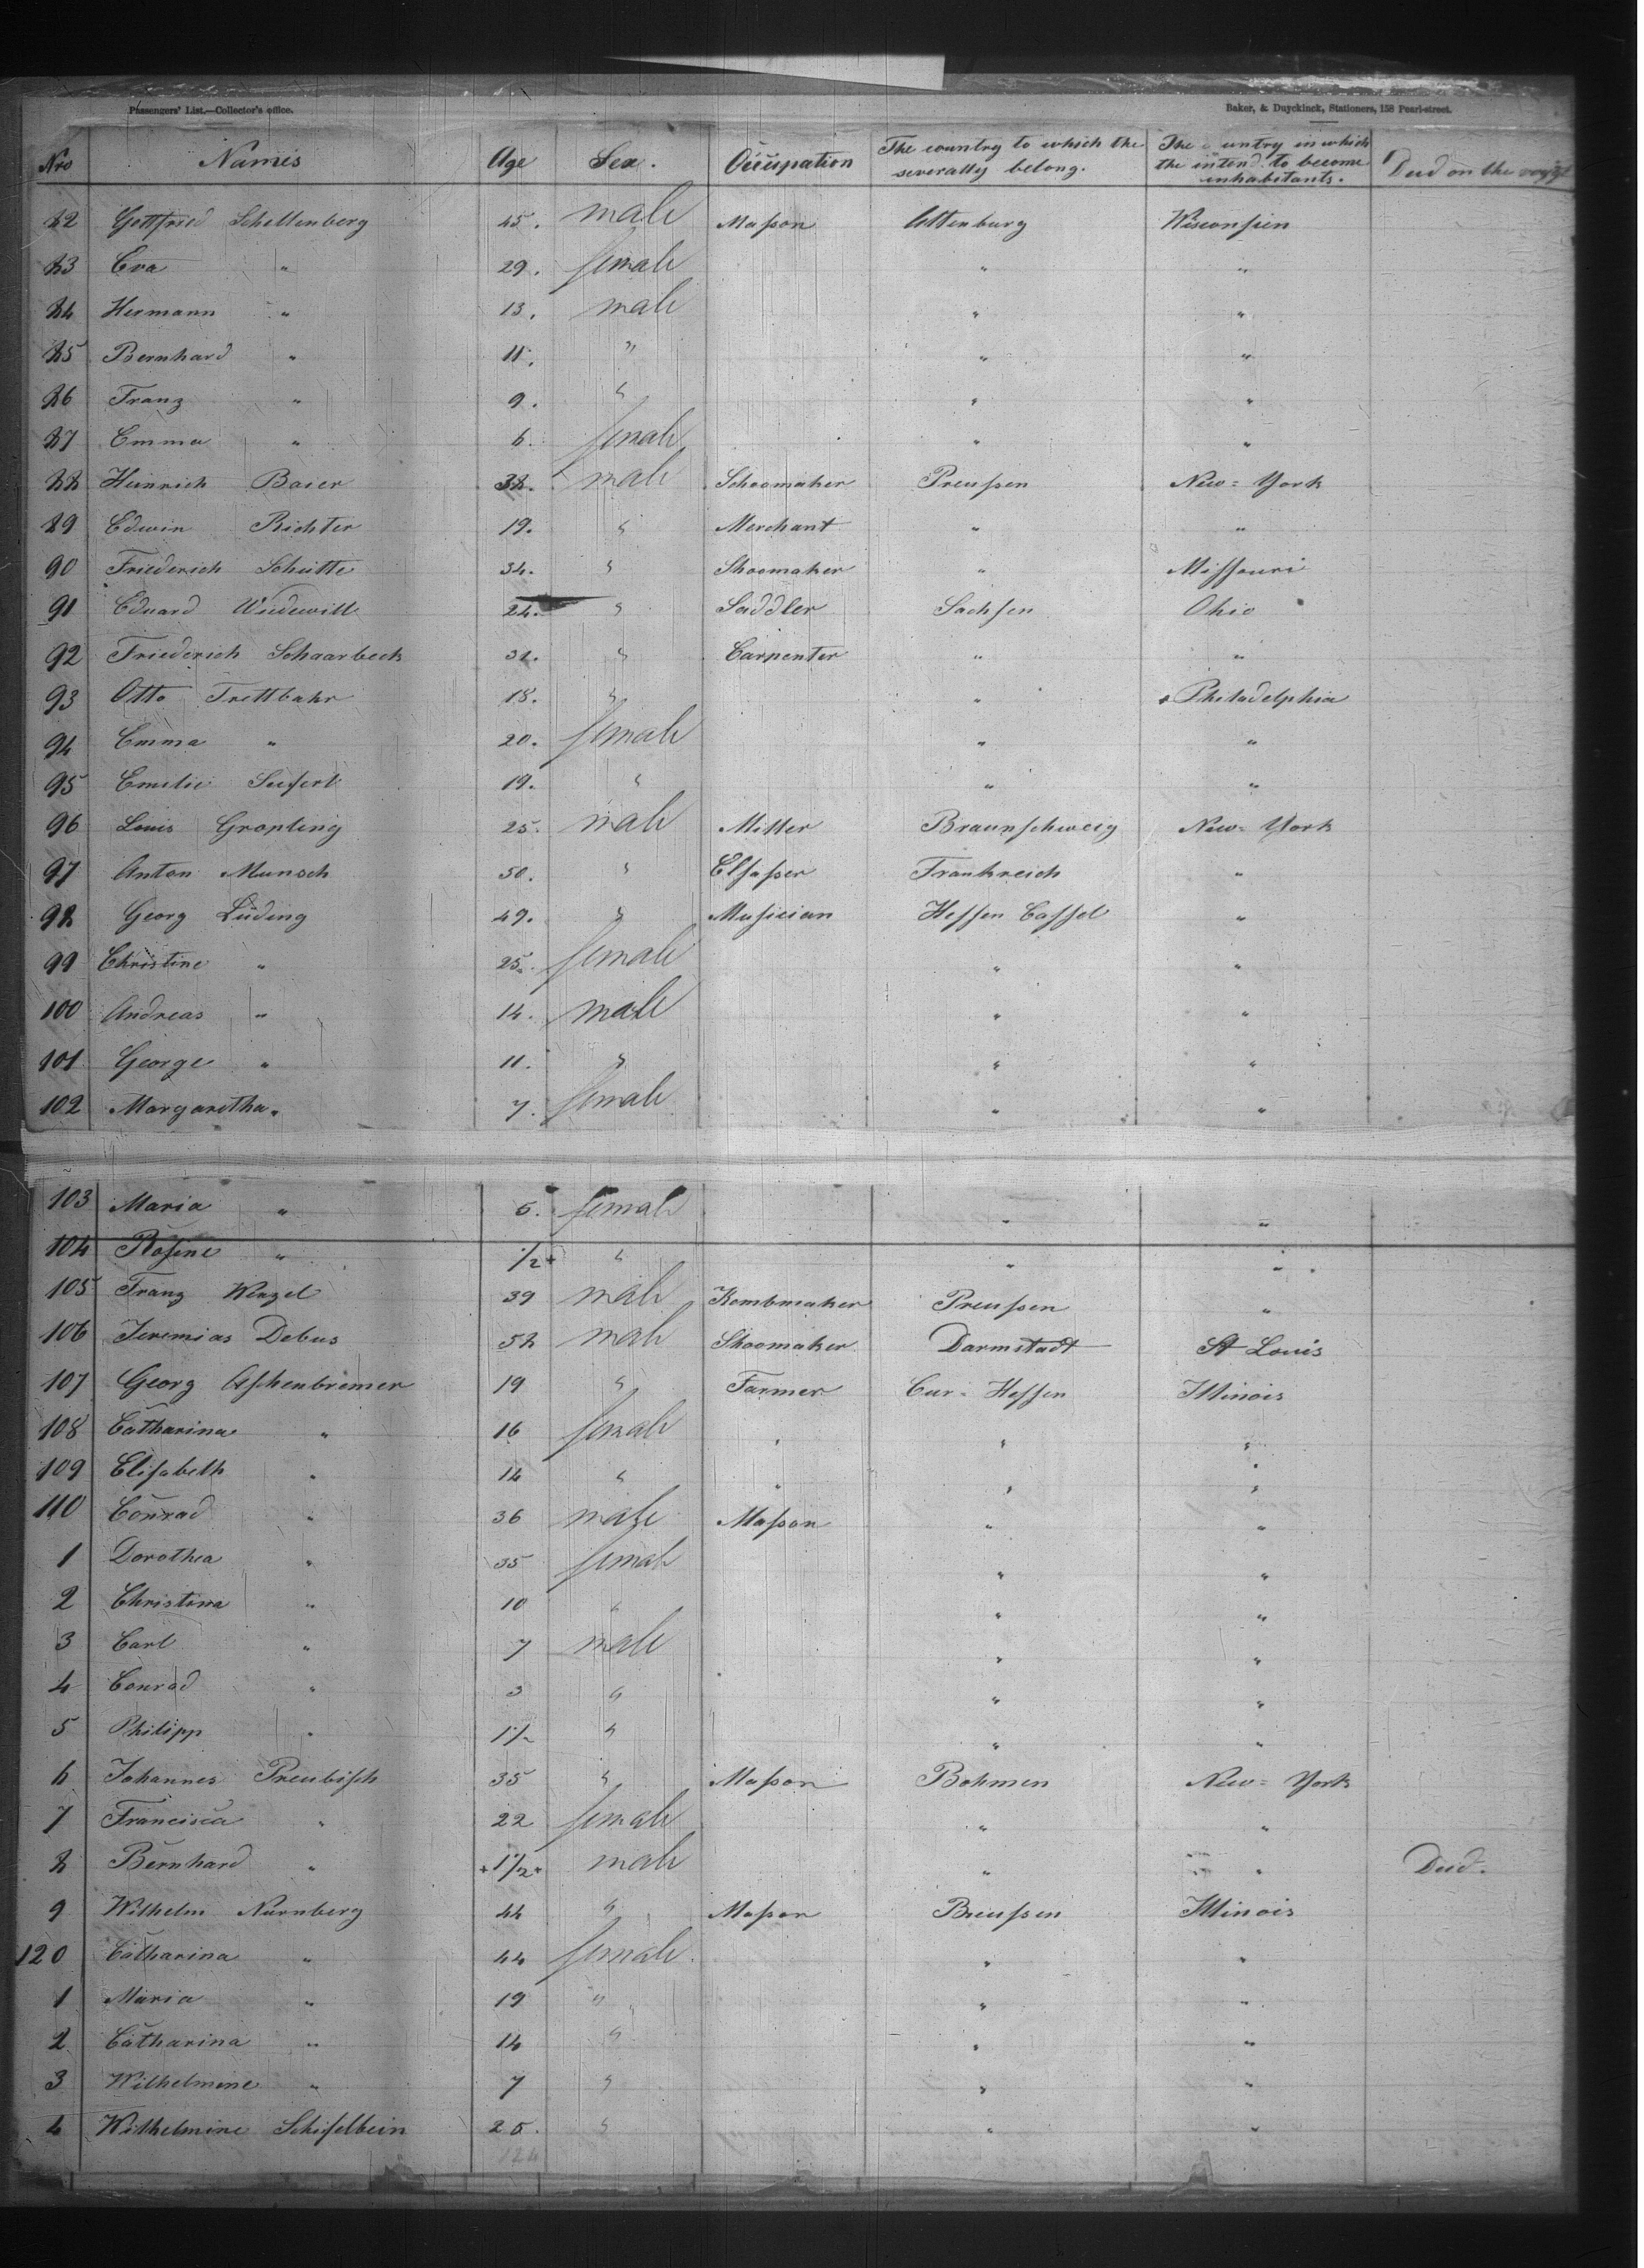 Passengers' List.—Collector's office.
Baker, & Duyckinck, Stationers, 158 Pearl-street.
Nro Names Age Sex. Occupation The country to which the severally belong. The country in which the intend. to become inhabitants. Died on the
82 Gottfried Schellenberg 45. male Masson Altenburg Wisconsien
83 Eva " 29. female " "
84 Hermann " 13. male " "
85 Bernhard " 11. " " "
86 Franz " 9. " " "
87 Emma " 6. female " "
88 Heinrich Baier 38. male Schoomaker Preussen New-York
89 Edwin Richter 19. " Merchant " "
90 Friederich Schütte 34. " Shoomaker " Missouri
91 Eduard 24. " Saddler Sachsen Ohio
92 Friederich Schaarbeck 31. " Carpenter " "
93 Otto Trettbahr 18. " " Philadelphia
94 Emma " 20. female " "
95 Emelie Seifert 19. " " "
96 Louis Gropling 25. male Miller Braunschweig New-York
97 Anton Munsch 50. " Elsasser Frankreich "
98 Georg Lüding 49. " Musician Hessen Cassel "
99 Christine " 25. female " "
100 Andreas " 14. male " "
101 George " 11. " " "
102 Margaretha " 7. female " "
103 Maria " 5. female " "
104 Rosine " 1/2 " " "
105 Franz Wenzel 39 male Kombmaker Preussen "
106 Jeremias Debus 58 male Shoomaker Darmstadt St Louis
107 Georg Aschenbremer 19 " Farmer Cur-Hessen Illinois
108 Catharina " 16 female " " "
109 Elisabeth " 14 " " " "
110 Conrad " 36 male Masson " "
1 Dorothea " 35 female " "
2 Christina " 10 " " "
3 Carl " 7 male " "
4 Conrad " 3 " " "
5 Philipp " 1 1/2 " " "
6 Johannes Preubisch 35 " Masson Bohmen New-York
7 Francisca " 22 female " "
8 Bernhard " 1 1/2 male " " Died.
9 Wilhelm Nürnberg 44 " Masson Preussen Illinois
120 Catharina " 44 female " "
1 Maria " 19 " " "
2 Catharina " 14 " " "
3 Wilhelmene " 7 " " "
4 Wilhelmine Schifelbein 25. " " "
124